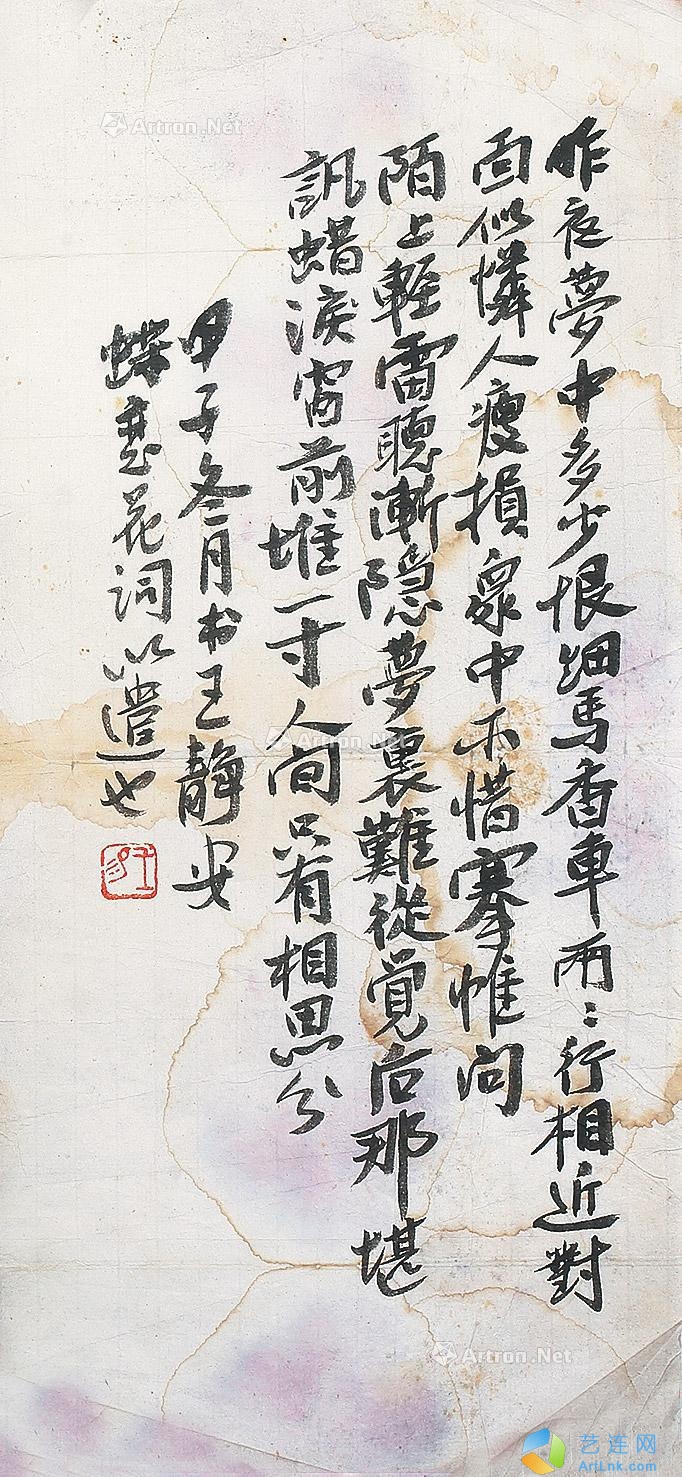 昨夜夢中多少恨細馬香車兩〻行相近對
面似憐人瘦損衆中不惜搴帷問
陌上輕雷聽漸隱夢裏難從覚后那堪
訊蜡淚窗前堆一寸人间只有相思分
甲子冬月书王静安
蝶恋花词以遣也
Artron.Net
Artron.Net
Artron.Net
艺连网
ArtLnk.com